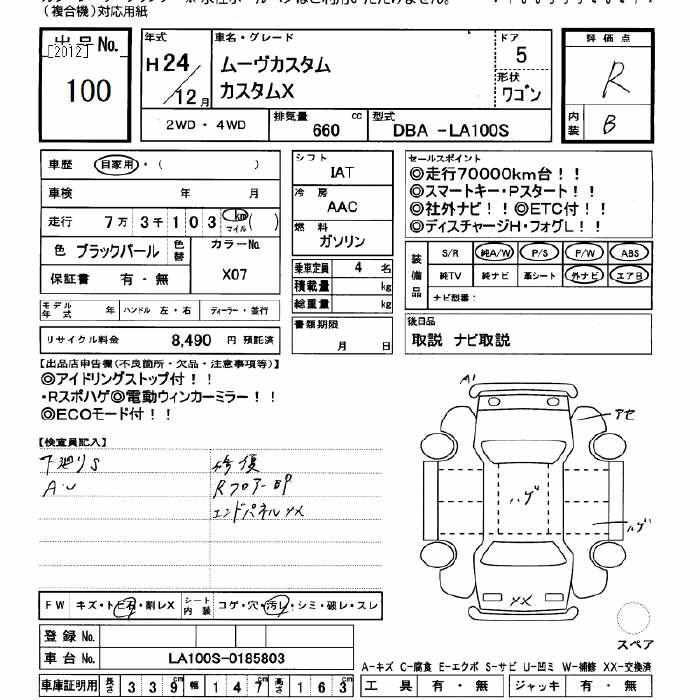 (複合機)対応用紙
出品No.
[2012]
100
年式
H24/12月
車名・グレード
ムーヴカスタム
カスタムX
ドア
5
形状
ワゴン
評価点
R
内装
B
2WD・4WD
排気量
660
cc
型式
DBA -LA100S
車歴 自家用・( )
車検 年 月
走行 7万3千103 km マイル ( )
色 ブラックパール
色替
カラーNo.
X07
保証書 有・無
モデル年式 年
ハンドル 左・右
ディーラー・並行
リサイクル料金 8,490 円 預託済
シフト
IAT
冷房
AAC
燃料
ガソリン
乗車定員 4 名
積載量 kg
総重量 kg
書類期限
月 日
セールスポイント
◎走行70000km台!!
◎スマートキー・Pスタート!!
◎社外ナビ!!◎ETC付!!
◎ディスチャージH・フォグL!!
装備品
S/R 純A/W P/S P/W ABS
純TV 純ナビ 革シート 外ナビ エアB
ナビ型番:
後日品
取説 ナビ取説
【出品店申告欄(不良箇所・欠品・注意事項等)】
◎アイドリングストップ付!!
・Rスポハゲ◎電動ウィンカーミラー!!
◎ECOモード付!!
【検査員記入】
下廻りS
AU
修復
Rフロアー凹P
エンドパネルXX
A1
アセ
ハゲ
ハゲ
XX
スペア
FW キズ・トビ石・割レX
シート内装 コゲ・穴・汚レ・シミ・破レ・スレ
登録No.
車台No. LA100S-0185803
車庫証明用 長さ 339cm 幅 147cm 高さ 163cm
A-キズ C-腐食 E-エクボ S-サビ U-凹ミ W-補修 XX-交換済
工具 有・無
ジャッキ 有・無